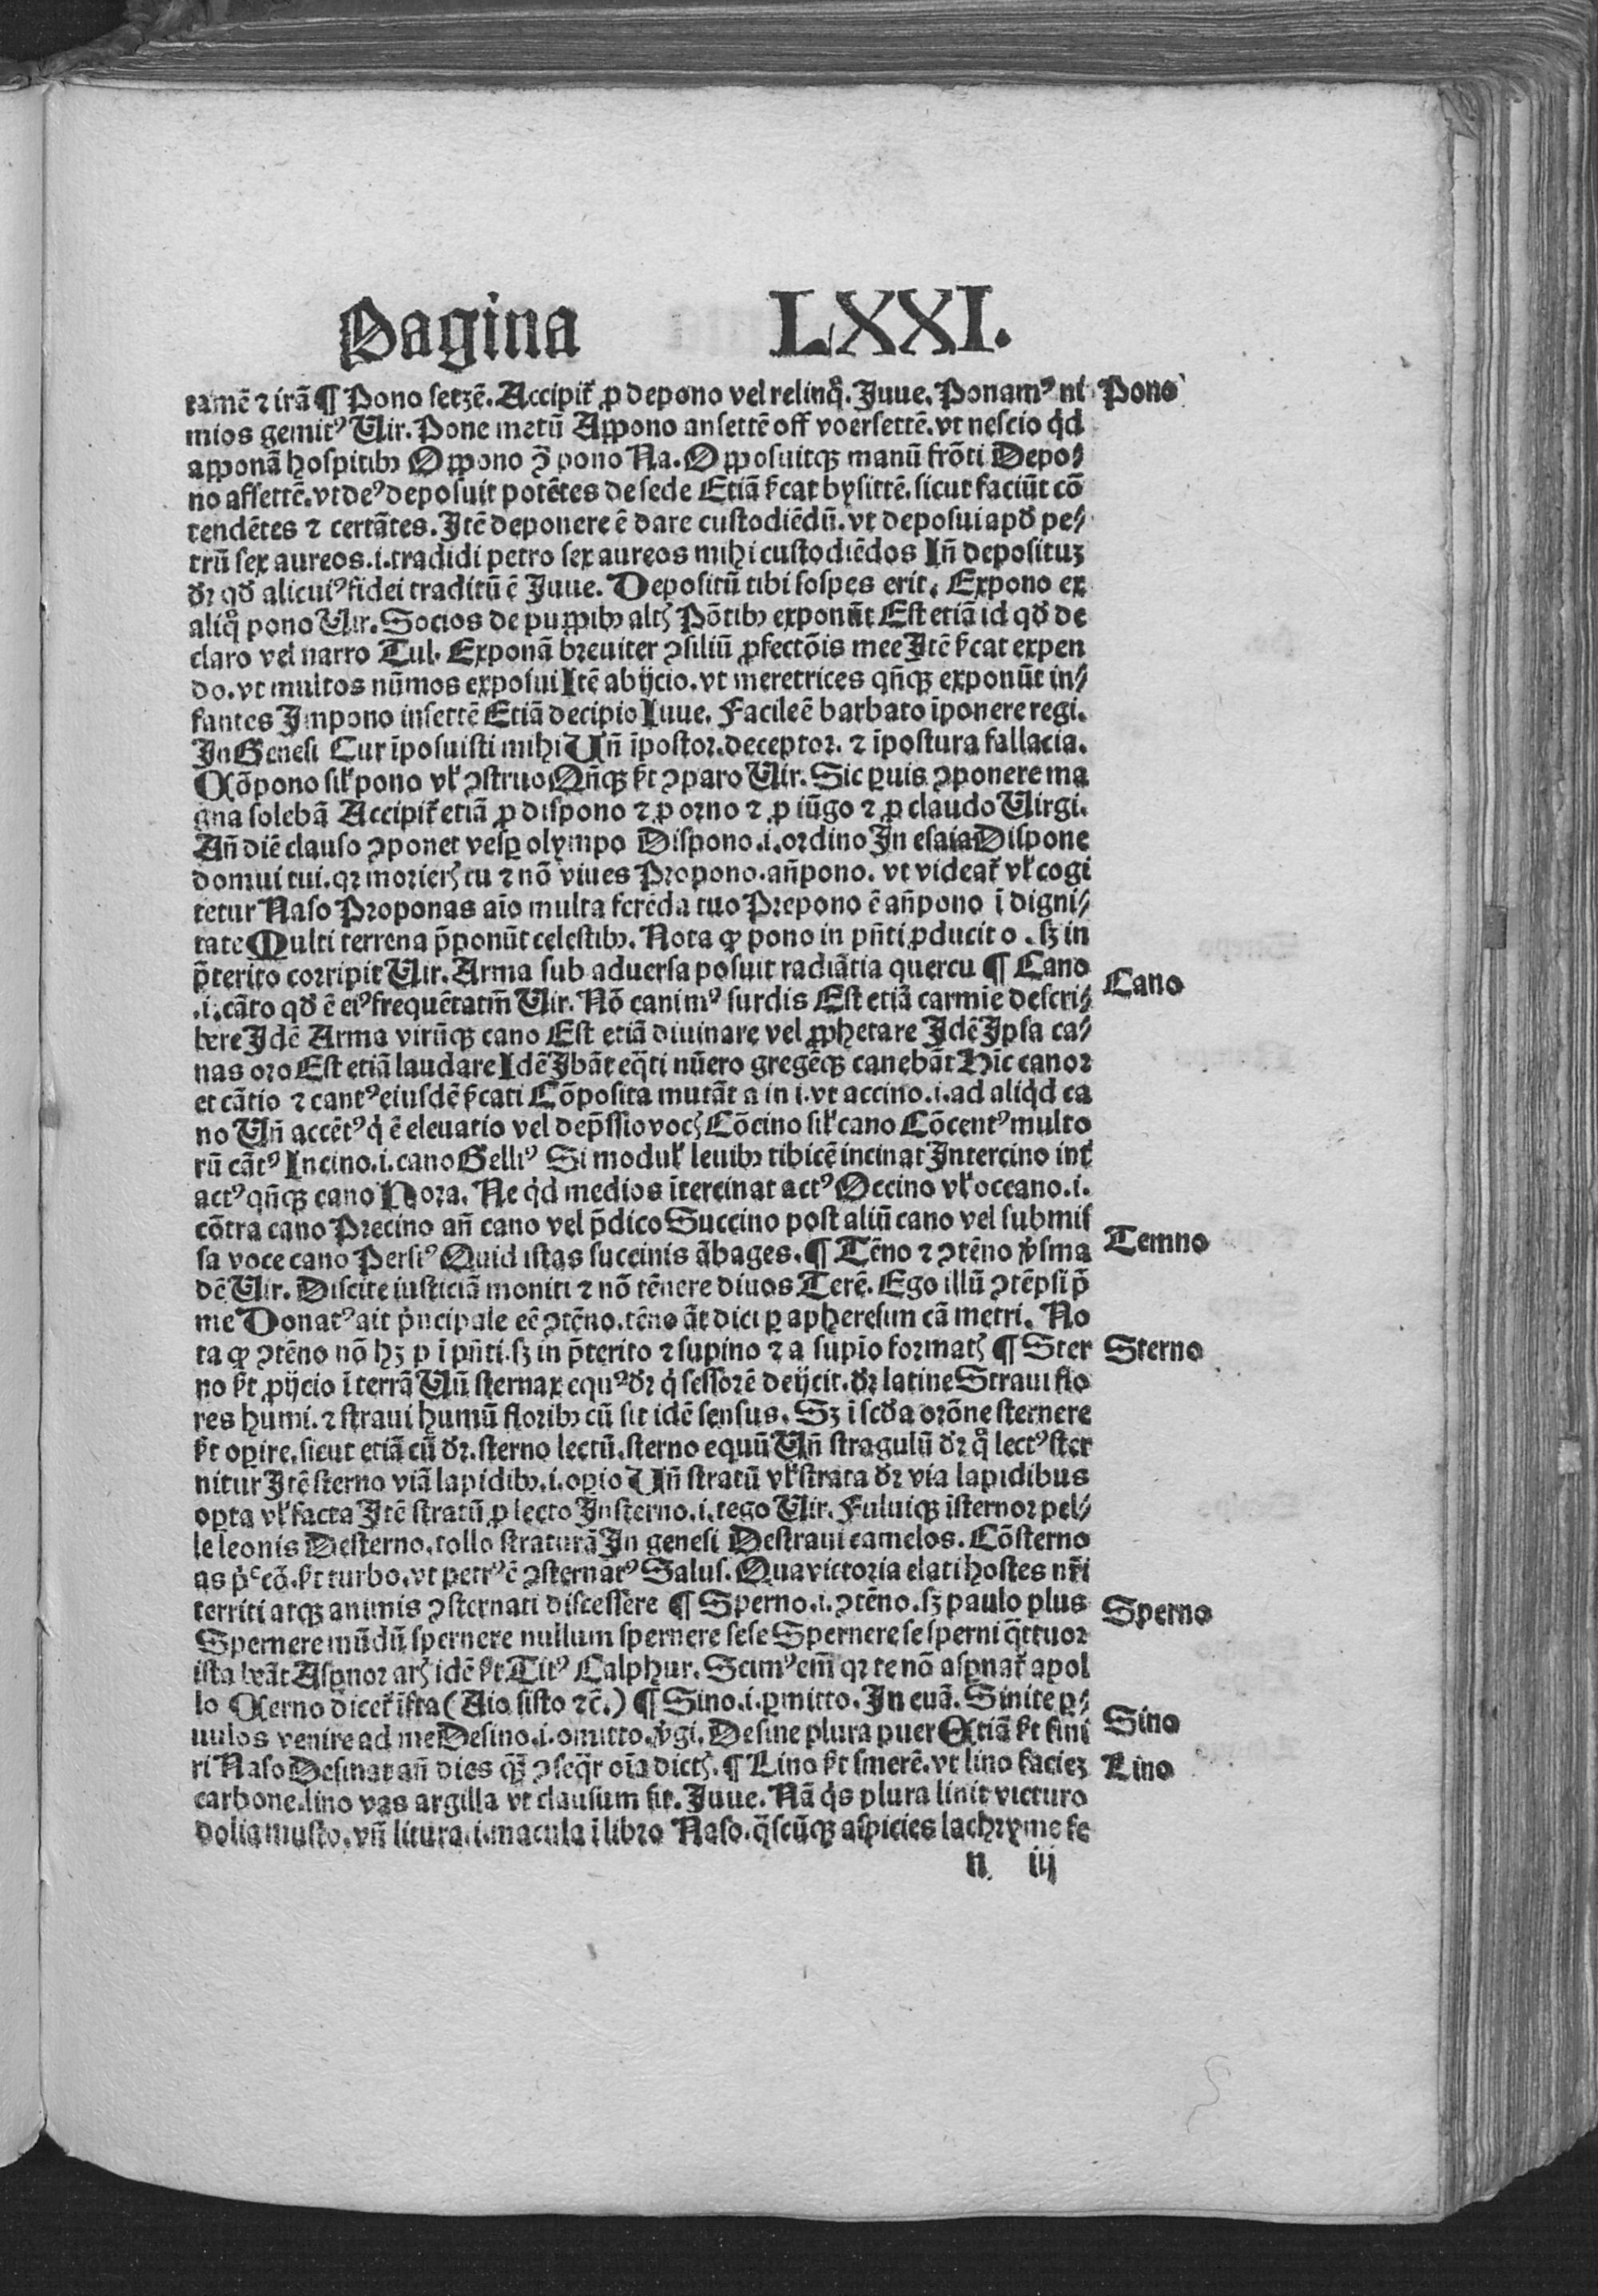 Pagina LXXI.
tamē ⁊ irā ¶ Pono setzē. Accipit᷑ ꝓ depono vel relinq̊. Juue. Ponamꝰ ni
Pono
mios gemitꝰ Vir. Pone metū Appono ansettē off voersettē. vt nescio qͥd
apponā hospitibꝫ Oppono ↄ̄ pono Na. Opposuitqꝫ manū frōti Depo⸗
no affettē. vt deꝰ deposuit potētes de sede Etiā s̄cat bysittē. sicut faciūt cō
tendētes ⁊ certātes. Jtē deponere ē dare custodiēdū. vt deposui apd̕ pe⸗
trū sex aureos. i. tradidi petro sex aureos mihi custodiēdos In̄ deposituꝫ
dr̄ qd̕ alicuiꝰ fidei traditū ē Juue. Depositū tibi sospes erit. Expono ex
aliq̊ pono Vir. Socios de puppibꝫ altꝭ Pōtibꝫ exponūt Est etiā id qd̕ de
claro vel narro Tul. Exponā breuiter ↄsiliū ꝓfectōis mee Jtē s̄cat expen
do. vt multos nūmos exposui Itē abijcio. vt meretrices qn̄qꝫ exponūt in⸗
fantes Jmpono insettē Etiā decipio Iuue. Facile ē barbato īponere regi.
Jn Genesi Cur īposuisti mihi Vn̄ īpostor. deceptor. ⁊ īpostura fallacia.
Cōpono sil̕ pono vl̕ ↄstruo Qn̄qꝫ s̄t ↄparo Vir. Sic ꝑuis ↄponere ma
gna solebā Accipit᷑ etiā ꝓ dispono ⁊ ꝓ orno ⁊ ꝓ iūgo ⁊ ꝓ claudo Virgi.
An̄ diē clauso ↄponet vesꝑ olympo Dispono .i. ordino Jn esaia Dispone
domui tui. qꝛ morierꝭ tu ⁊ nō viues Propono. an̄pono. vt videat᷑ vl̕ cogi
tetur Naso Proponas aīo multa ferēda tuo Prepono ē an̄pono ī digni⸗
tate Multi terrena p̄ponūt celestibꝫ. Nota ꝙ pono in pn̄ti ꝓducit o . sꝫ in
p̄terito corripit Vir. Arma sub aduersa posuit radiātia quercu ¶ Cano
Cano
.i. cāto qd̕ ē eiꝰ frequētatm̄ Vir. Nō canimꝰ surdis Est etiā carmīe descri⸗
bere Jdē Arma virūqꝫ cano Est etiā diuinare vel ꝓphetare Jdē Jpsa ca⸗
nas oro Est etiā laudare Idē Jbāt eq̄ti nūero gregēqꝫ canebāt Hīc canor
et cātio ⁊ cantꝰ eiusdē s̄cati Cōposita mutāt a in i. vt accino. i. ad aliqͥd ca
no Vn̄ accētꝰ qͥ ē eleuatio vel dep̄ssio vocꝭ Cōcino sil̕ cano Cōcentꝰ multo
rū cātꝰ Incino. i. cano Gelliꝰ Si modul̕ leuibꝫ tibicē incinat Jntercino int᷑
actꝰ qn̄qꝫ cano Hora. Ne qͥd medios īterci​nat actꝰ Occino vl̕ occano. i.
cōtra cano Precino an̄ cano vel p̄dico Succino post aliū cano vel submis
sa voce cano Persiꝰ Quid istas succinis ābages. ¶ Tēno ⁊ ↄtēno v̕sma
Temno
dē Vir. Discite iusticiā moniti ⁊ nō tēnere diuos Terē. Ego illū ↄtēpsi p̄
me Donatꝰ ait pͥncipale eē ↄtēno. tēno āt dici ꝑ apheresun cā metri. No
ta ꝙ ↄtēno nō hꝫ p ī pn̄ti. sꝫ in p̄terito ⁊ supino ⁊ a supīo formatꝭ ¶ Ster
Sterno
no s̄t ꝓijcio ī terrā Vn̄ sternax equꝰ dr̄ qͥ sessorē deijcit. dr̄ latine Straui flo
res humi. ⁊ straui humū floribꝫ cū sit idē sensus. Sꝫ ī scd̕a orōne sternere
s̄t oꝑire. sicut etiā cū dr̄. sterno lectū. sterno equū Vn̄ stragulū dr̄ q̊ lectꝰ ster
nitur Jtē sterno viā lapidibꝫ. i. oꝑio Vn̄ stratū vl̕ strata dr̄ via lapidibus
oꝑta vl̕ facta Jtē stratū ꝓ lecto Jnsterno. i. tego Vir. Fuluiqꝫ īsternor pel⸗
le leonis Desterno. tollo straturā Jn genesi Destraui camelos. Cōsterno
as pͥᶜcō. s̄t turbo. vt petrꝰ ē ↄsternatꝰ Salus. Qua victoria elati hostes nr̄i
territi atqꝫ animis ↄsternati discessere ¶ Sperno. i. ↄtēno. sꝫ paulo plus
Sperno
Spernere mūdū spernere nullum spernere sese Spernere se sperni q̄ttuor
ista beāt Asꝑnor arꝭ idē s̄t Titꝰ Calphur. Scimꝰ em̄ qꝛ te nō asꝑnat᷑ apol
lo Cerno dicet᷑ īfra (Aio sisto ⁊c̄.) ¶ Sino. i. ꝑmitto. Jn euā. Sinite ꝑ⸗
Sino
uulos venire ad me Desino. i. omitto. v̕gi. Desine plura puer Etiā s̄t fini
ri Naso Desinat an̄ dies qꝫ̄ ↄseq̄r oīa dictꝭ. ¶ Lino s̄t smerē. vt lino facieꝫ
Lino
carbone. lino vas argilla vt clausum sit. Juue. Nā qͥs plura linit victuro
dolia musto. vn̄ litura. i. macula ī libro Naso. q̄scūqꝫ aspicies lachryme fe
n iij